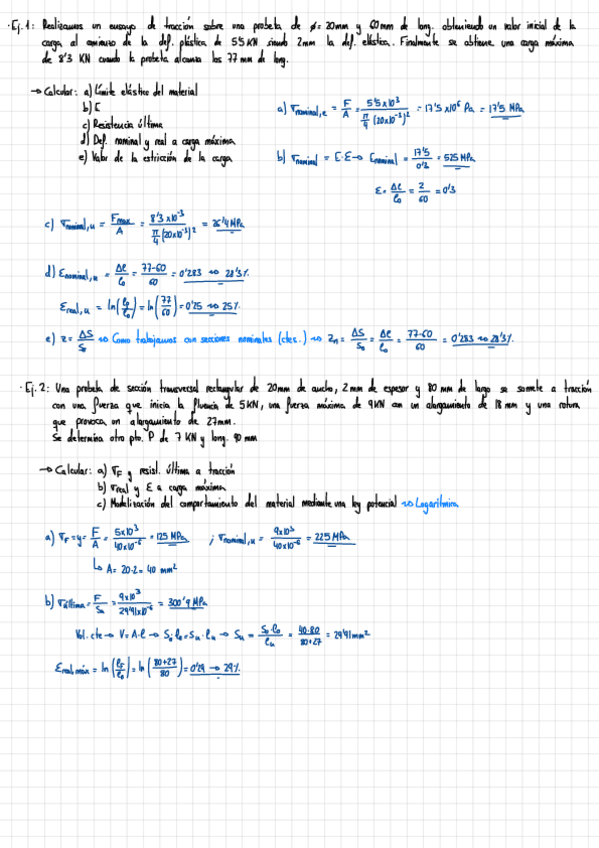 · Ej. 1: Realizamos un ensayo de tracción sobre una probeta de ø=20mm y 60mm de long. obteniendo un valor inicial de la
carga al comienzo de la def. plástica de 5'5 KN siendo 2mm la def. elástica. Finalmente se obtiene una carga máxima
de 8'3 KN cuando la probeta alcanza los 77 mm de long.
→ Calcular: a) Límite elástico del material
b) E
c) Resistencia última
d) Def. nominal y real a carga máxima
e) Valor de la estricción de la carga
a) σnominal,e = F/A = 5'5x10³ / π/4 (20x10⁻³)² = 17'5 x10⁶ Pa = 17'5 MPa
b) σnominal = E·ε → Enominal = 17'5/0'3 = 525 MPa
ε = Δl/l₀ = 2/60 = 0'3
c) σnominal,u = Fmax/A = 8'3x10⁻³ / π/4 (20x10⁻³)² = 26'4 MPa
d) εnominal,u = Δl/l₀ = 77-60/60 = 0'283 → 28'3%
εreal,u = ln(lf/l₀) = ln(77/60) = 0'25 → 25%
e) z = ΔS/S₀ → Como trabajamos con secciones nominales (ctes.) → Zn = ΔS/S₀ = Δl/l₀ = 77-60/60 = 0'283 → 28'3%
· Ej. 2: Una probeta de sección transversal rectangular de 20mm de ancho, 2mm de espesor y 80 mm de largo se somete a tracción
con una fuerza que inicia la fluencia de 5KN, una fuerza máxima de 9KN con un alargamiento de 18 mm y una rotura
que provoca un alargamiento de 27mm.
Se determina otro pto. P de 7 KN y long. 90 mm
→ Calcular: a) σF y resist. última a tracción
b) σreal y ε a carga máxima
c) Modelización del comportamiento del material mediante una ley potencial → Logarítmica
a) σF = y = F/A = 5x10³/40x10⁻⁶ = 125 MPa ; σnominal,u = 9x10³/40x10⁻⁶ = 225 MPa
↳ A = 20·2 = 40 mm²
b) σúltima = F/Su = 9x10³/29'91x10⁻⁶ = 300'9 MPa
Vol. cte → V = A·l → S₀·l₀ = Su·lu → Su = S₀·l₀/lu = 40·80/80+27 = 29'91mm²
εreal,máx = ln(lf/l₀) = ln(80+27/80) = 0'29 → 29%